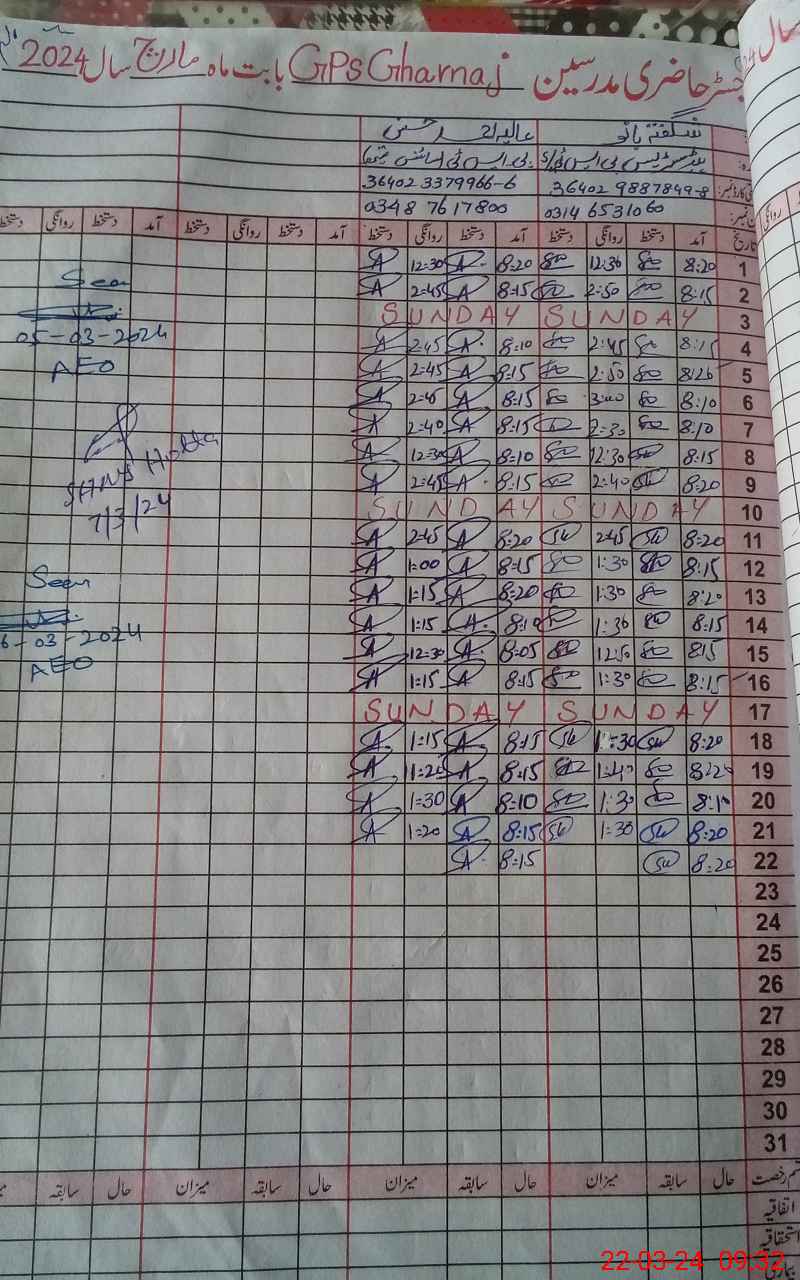 رجسٹر حاضری مدرسین GPS Gharnaj بابت ماہ مارچ سال 2024
شگفتہ بانو
36402 3379966-6 36402 9887849-8
0348 7617800 0314 6531060
تاریخ آمد دستخط روانگی دستخط آمد دستخط روانگی دستخط آمد دستخط روانگی دستخط آمد دستخط روانگی دستخط
1 8:20 12:30 8:20 A 12:30 A
2 8:15 2:50 8:15 A 2:45 A
3 SUNDAY SUNDAY
4 8:15 2:45 8:10 A 2:45 A
5 8:20 2:50 8:15 A 2:45 A
6 8:10 3:00 8:15 A 2:45 A
7 8:10 2:30 8:15 A 2:40 A
8 8:15 12:30 8:10 A 12:30 A
9 8:20 2:40 8:15 A 2:45 A
10 SUNDAY SUNDAY
11 8:20 2:45 8:20 A 2:45 A
12 8:15 1:30 8:15 A 1:00 A
13 8:20 1:30 8:20 A 1:15 A
14 8:15 1:30 8:10 A 1:15 A
15 8:15 12:50 8:05 A 12:30 A
16 8:15 1:30 8:15 A 1:15 A
17 SUNDAY SUNDAY
18 8:20 1:30 8:15 A 1:15 A
19 8:20 1:40 8:15 A 1:20 A
20 8:10 1:30 8:10 A 1:30 A
21 8:20 1:30 8:15 A 1:20 A
22 8:20 8:15 A
23
24
25
26
27
28
29
30
31
Seen
05-03-2024
AEO
7/3/24
Seen
6-03-2024
AEO
قسم رخصت حال سابقہ میزان حال سابقہ میزان حال سابقہ میزان حال سابقہ
اتفاقیہ
استحقاقیہ
بیماری
22-03-24 09:32